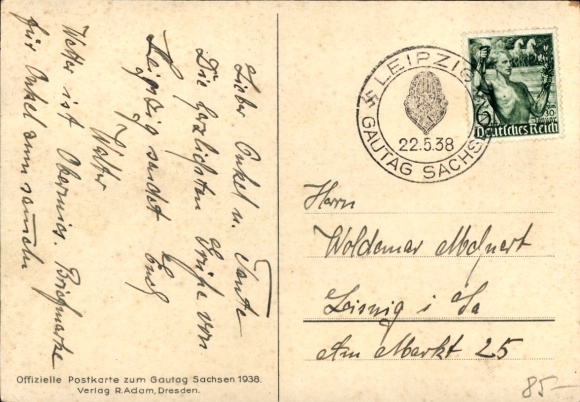 Lieber Onkel u. Tante
Die herzlichsten Grüße von
Leipzig sendet Euch
Walter
Wetter ist Briefmarke
für Onkel zum
Offizielle Postkarte zum Gautag Sachsen 1938.
Verlag R. Adam, Dresden.
LEIPZIG
22.5.38
GAUTAG SACHSEN
Deutsches Reich
Herrn
Woldemar
Leisnig i Sa
Am Markt 25
85.—